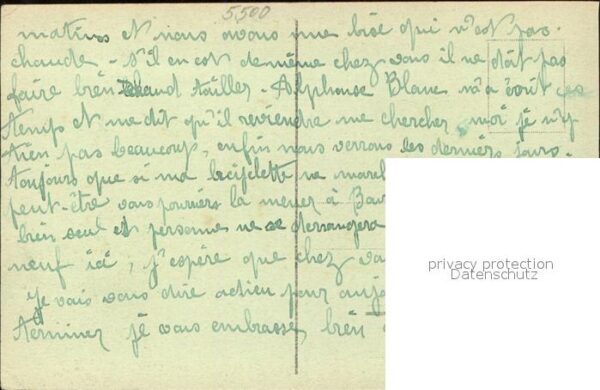 5,500
matins et nous avons une bise qui n'est pas
chaude - S'il en est de même chez vous il ne doit pas
faire bien chaud tailler - Alphonse Blanc m'a écrit ces
temps et me dit qu'il reviendra me chercher, moi je n'y
tien pas beaucoup, enfin nous verrons les derniers jours.
toujours que si ma bicyclette ne
peut-être vous pourriez la mener à
bien seul et personne ne se derrangera
neuf ici, j'espère que chez
je vais vous dire adieu pour
terminer je vous embrasse bien
privacy protection
Datenschutz